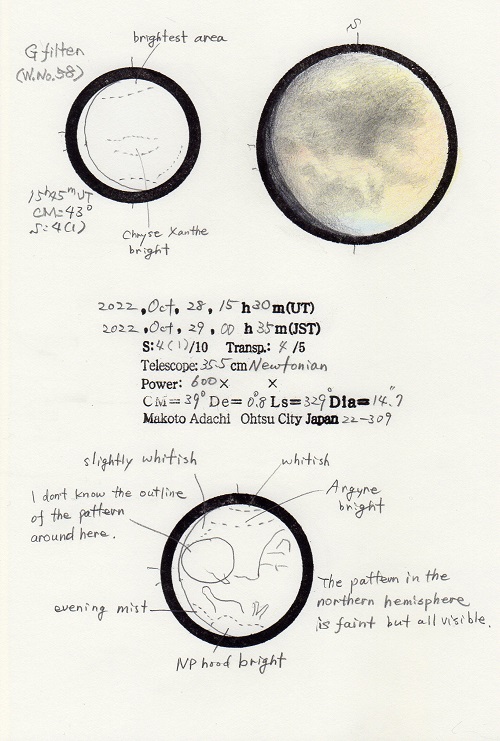 S
G filter
(W.No.58)
brightest area
15h45m UT
CM=43°
S:4(1)
Chryse Xanthe
bright
2022, Oct, 28, 15 h 30 m(UT)
2022, Oct, 29, 00 h 35 m(JST)
S:4(1)/10 Transp.: 4/5
Telescope:35.5 cm Newtonian
Power: 600× ×
CM=39° De=0.8° Ls=329° Dia=14.7"
Makoto Adachi Ohtsu City Japan 22-309
slightly whitish
whitish
I dont know the outline
of the pattern
around here.
Argyre
bright
evening mist
The pattern in the
northern hemisphere
is faint but all visible.
NP hood bright